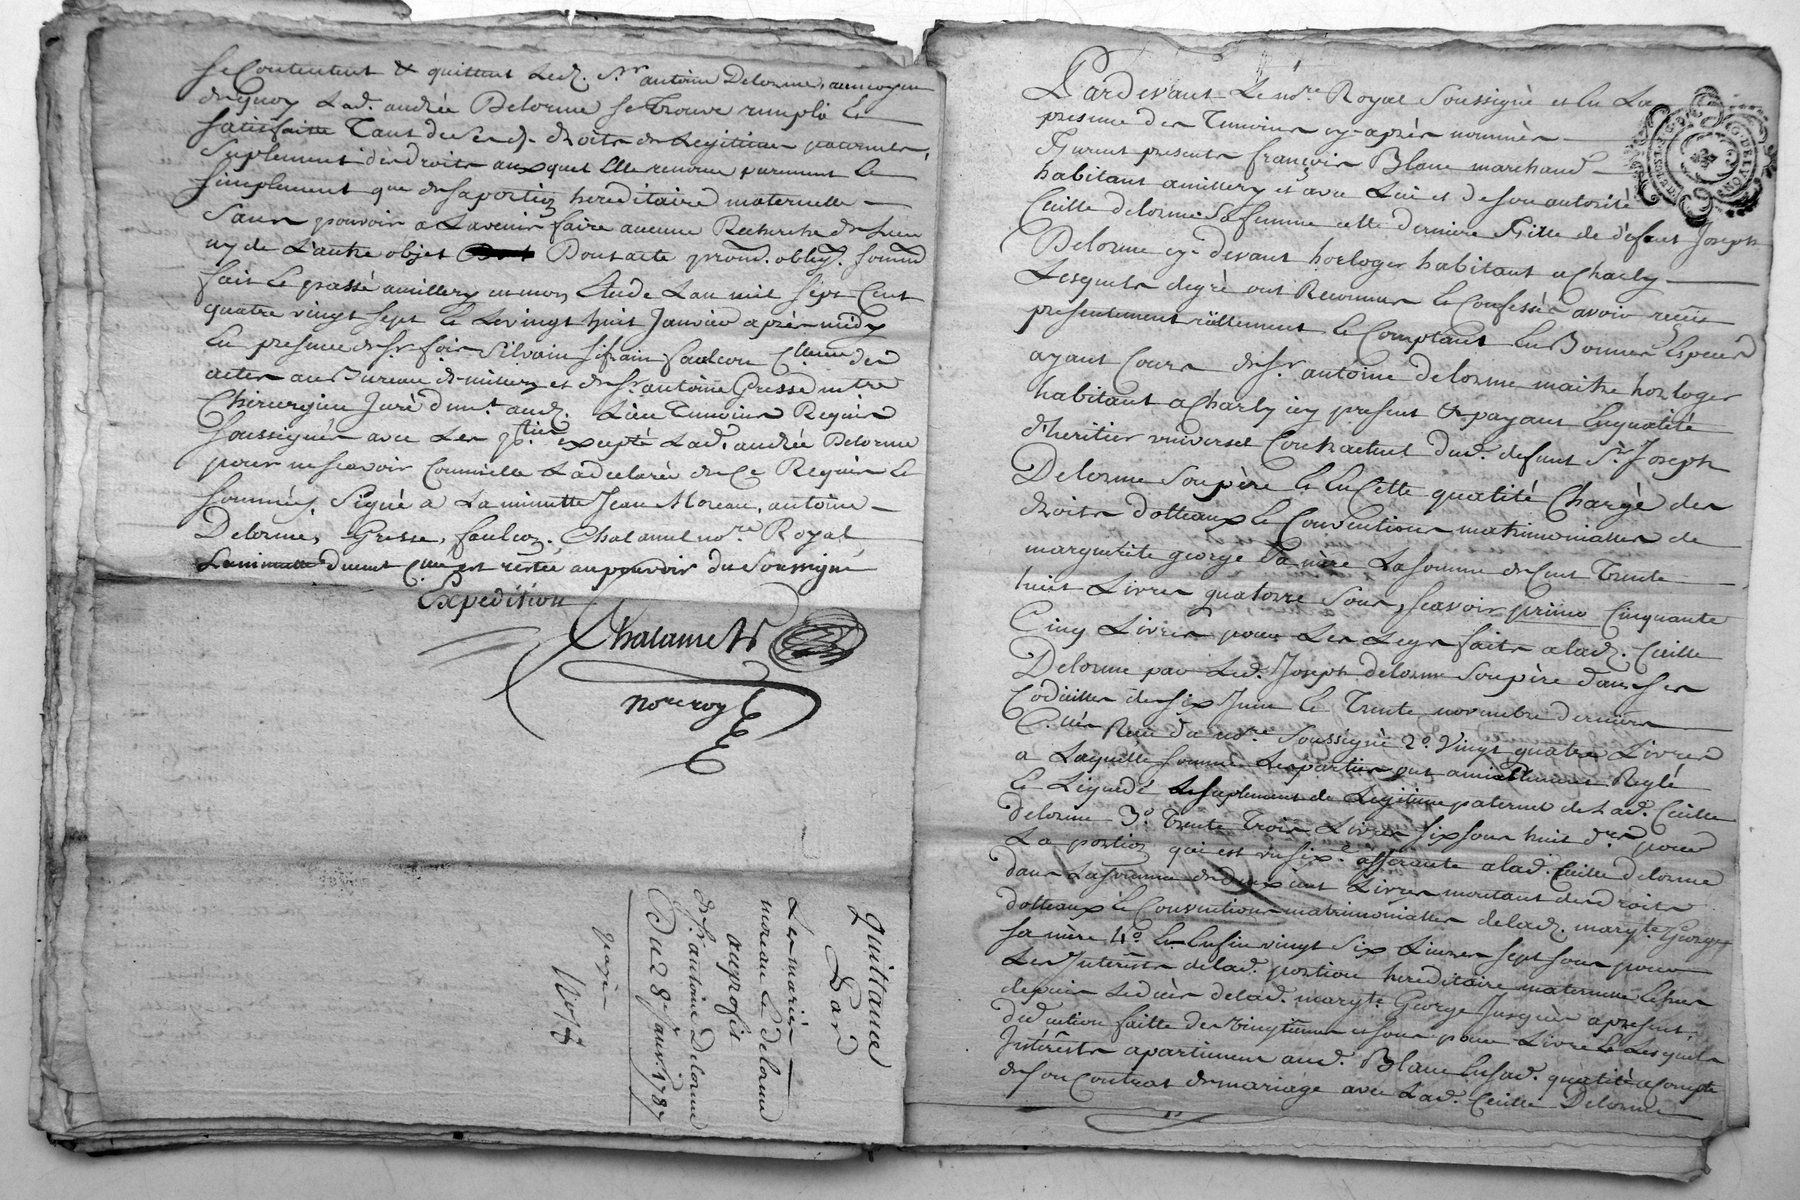 se Contentent & quittent led. Sr. antoine Delorme, aumoyen
dequoy Lad. andrée Delorme se trouve remplie Et
satisfaitte Tant de Sesd. droits de Legitime paternels,
Suplement de droits auxquel Elle renonce purement Et
simplement que desaportion hereditaire maternelle —
Sans pouvoir a Lavenir faire aucune Recherche de Lun
ny de L'autre objet Dont acte prom. oblig. soumis
fait Et passé amillery enmon Etude Lan mil Sept Cent
quatre vingt Sept Et Levingt huit Janvier après midy
En presence de Sr. Silvain faulcon des
actes au Bureau de millery et de Sr. antoine Gresse mtre
Chirurgien Juré dud. Lieu Temoins Requis
Soussignés avec Les pties. excepté Lad. andrée Delorme
pour ne Scavoir Comme elle L'adeclaré de Ce Requise Et
Sommée, Signé a La minutte Jean Moreau, antoine —
Delorme, Gresse, faulcon. Chalamel nore. Royal
Laminutte est restée aupouvoir du Soussigné
Expedition
Chalamel
nore roy
Quittance
Par
Les mariés —
moreau Et Delorme
auprofit
de Sr. antoine Delorme
Du 28e. Janvr. 1787
Pardevant Le nore. Royal Soussigné et En La
presence des Temoins cy-après nommés —
Furent presents françois Blanc marchand
habitant amillery et avec Lui et de son autorité
Cecille delorme Sa femme cette derniere Fille de defunt Joseph
Delorme cy-devant horloger habitant a Charly —
Lesquels degré ont Reconnus Et Confessés avoir reçu
presentement réellement Et Comptant En Bonnes Especes
ayant Cours de Sr. antoine Delorme maitre horloger
habitant a Charly icy present & payant Enqualité
d'heritier universel Contractuel dud. defunt Sr. Joseph
Delorme Sonpère Et En Cette qualité Chargé des
droits dotteaux Et Conventions matrimonialles de
marguerite george Sa mère La Somme de Cent Trente —
huit Livres quatorze Sous, scavoir primo Cinquante
Cinq Livres pour Les Legs faits alad. Cecille
Delorme par Led. Joseph delorme Sonpère dans ses
Codicilles de Six Juin Et Trente novembre derniers
Rue du nore. Soussigné 2o. Vingt quatre Livres
a Laquelle Somme Lesparties ont amiablement Reglé
Et Liquidé Lesuplement de Legitime paternel de Lad. Cecille
delorme 3o. Trente Trois Livres six sous huit drs. pour
La portion qui est un sixe. afferante alad. Cecille delorme
dans La Somme de deux cent Livres montant des droits
dotteaux Et Conventions matrimonialles de lad. margte. George
Sa mère 4o. Et Enfin vingt Six Livres sept sous pour
Les Interêsts delad. portion hereditaire maternelle
depuis Ledécès delad. margte. George Jusques apresent,
deduction faitte des vingtiemes et sous pour Livre Et Lesquels
Intérêsts apartiennent aud. Blanc Ensad. qualité acompte
de son Contrat de mariage avec Lad. Cecille Delorme